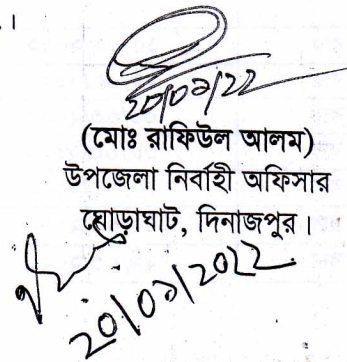 ।
20/০৯/22
(মোঃ রাফিউল আলম)
উপজেলা নির্বাহী অফিসার
ঘোড়াঘাট, দিনাজপুর।
20/০৯/2022